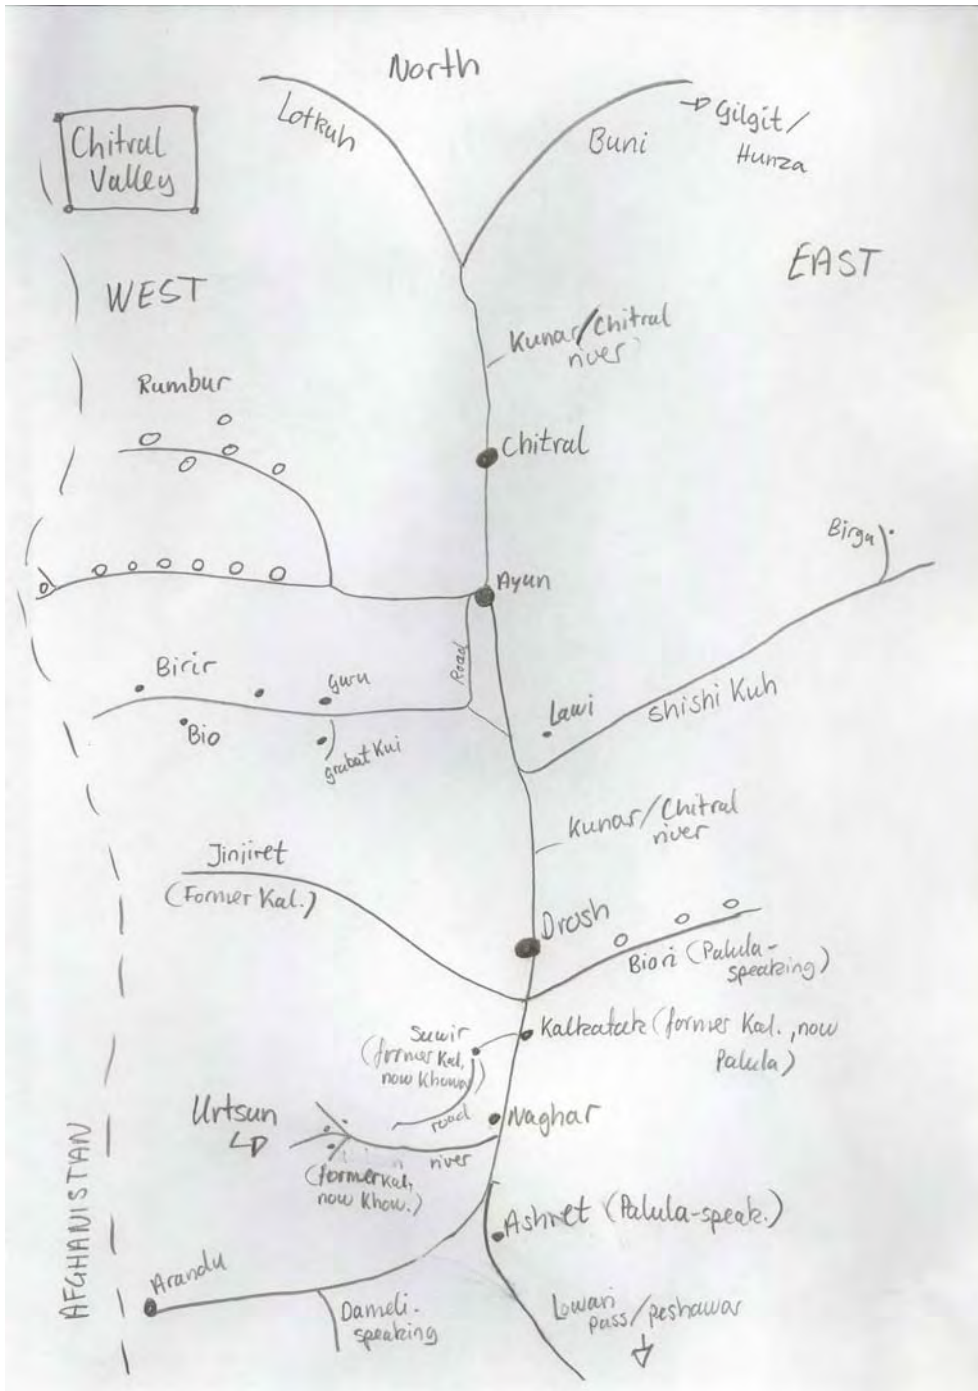 North
Lotkuh
Buni
→ Gilgit/
Hunza
Chitral
Valley
WEST
EAST
Kunar/Chitral
river
Rumbur
Chitral
Birga
Ayun
Road
Birir
guru
Bio
grabat Kui
Lawi
Shishi Kuh
Kunar/Chitral
river
Jinjiret
(Former Kal.)
Drosh
Biori (Palula-
speaking)
Suwir
(former Kal,
now Khowar)
Kalkatak (former Kal., now
Palula)
road
Naghar
Urtsun
river
(former Kal,
now Khow.)
Ashret (Palula-speak.)
AFGHANISTAN
Arandu
Dameli-
speaking
Lowari
pass/peshawar